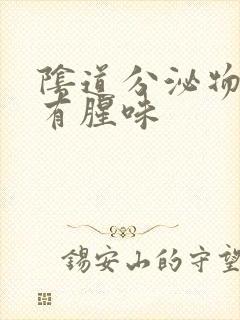 陰道分泌物
有腥味
錫安山的守望